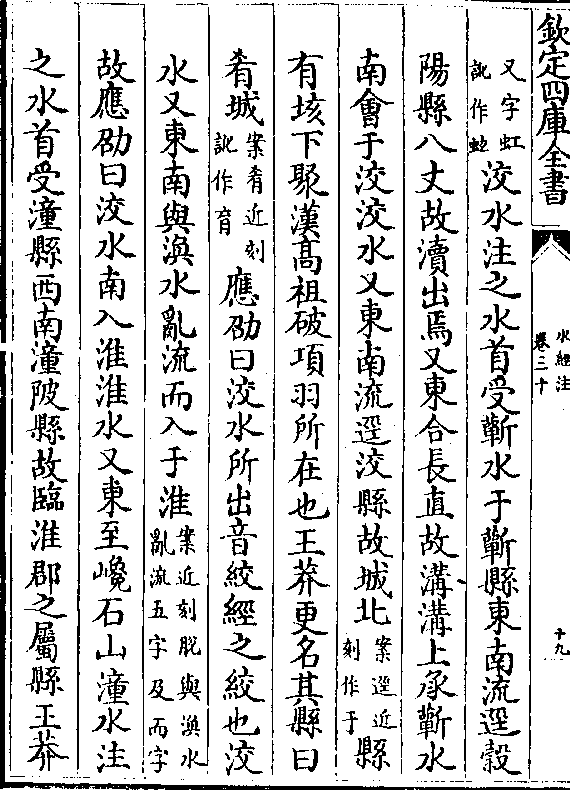 欽定四庫全書
水經注
卷三十
十九
又字虹
訛作蚍
洨水注之水首受蘄水于蘄縣東南流逕穀
陽縣八丈故瀆出焉又東合長直故溝溝上承蘄水
南會于洨洨水又東南流逕洨縣故城北
案逕近
刻作于
縣
有垓下聚漢髙祖破項羽所在也王莽更名其縣曰
肴城
案肴近刻
訛作育
應劭曰洨水所出音絞經之絞也洨
水又東南與渙水亂流而入于淮
案近刻脫與渙水
亂流五字及而字
故應劭曰洨水南入淮淮水又東至巉石山潼水注
之水首受潼縣西南潼陂縣故臨淮郡之屬縣王莽